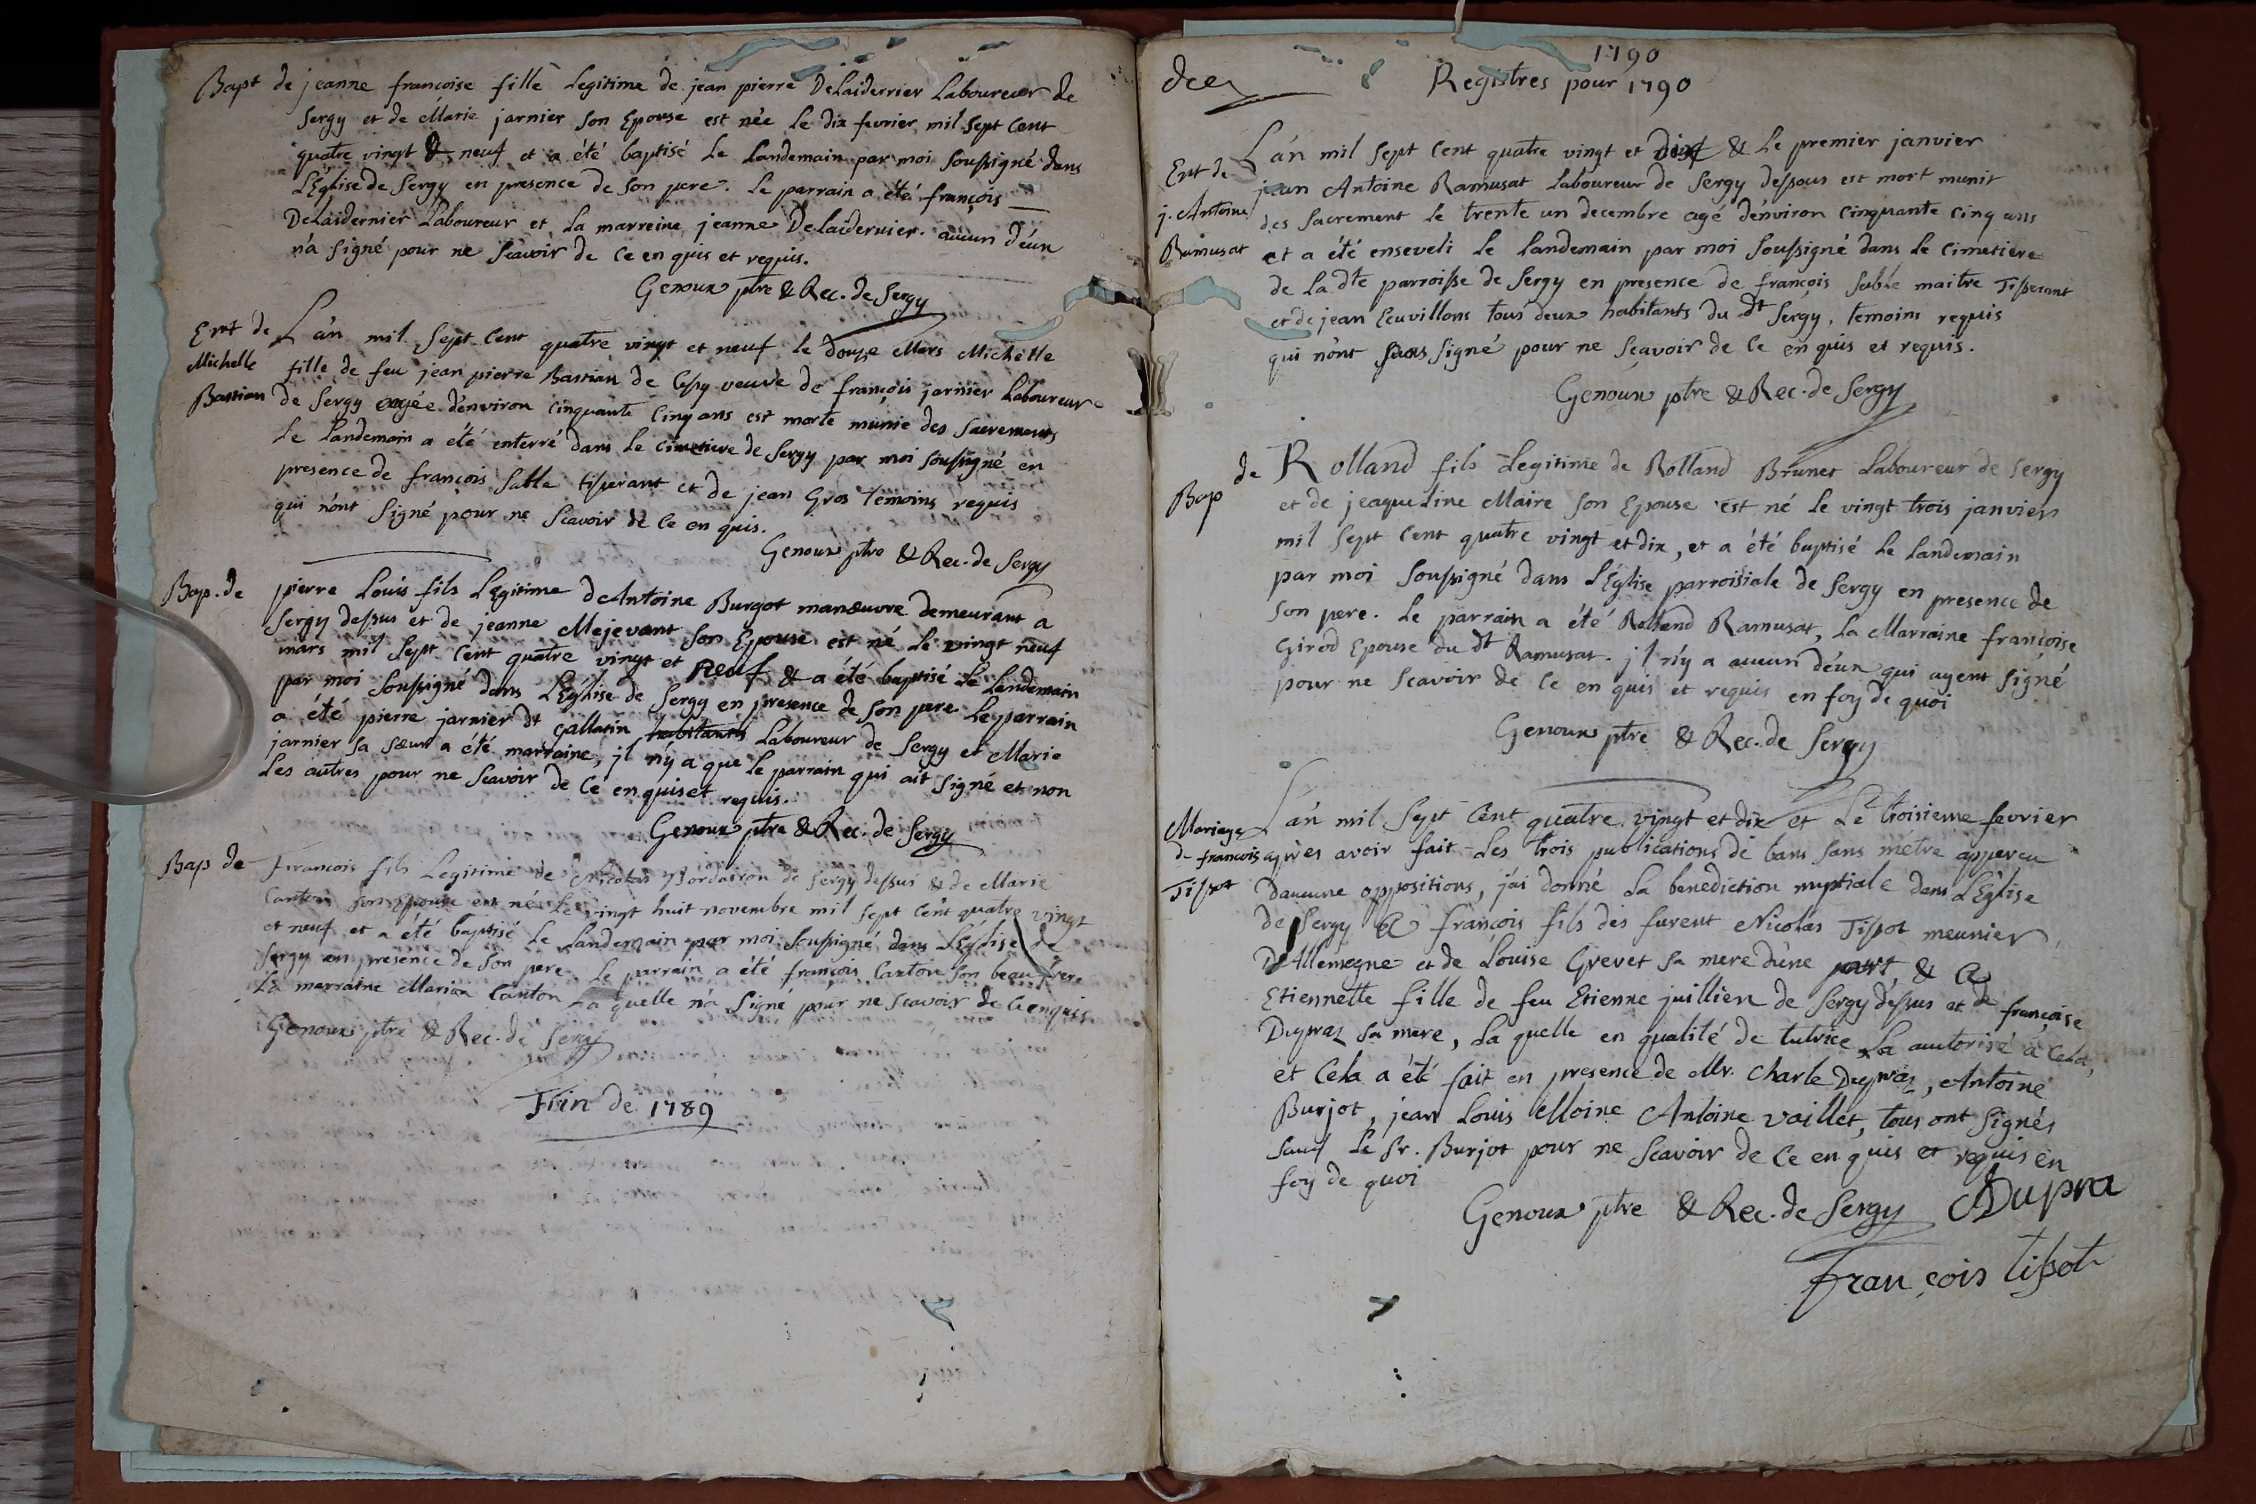 Bapt de jeanne francoise fille Legitime de jean pierre DeLaiderrier Laboureur de
Sergy et de Marie jarnier son Epouse est née le dix fevrier mil sept cent
quatre vingt & neuf et a été baptisé le Landemain par moi soussigné dans
L'Eglise de Sergy en presence de son pere. Le parrain a été françois
DeLaidernier Laboureur et la marreine jeanne DeLaidernier. aucun d'eux
n'a signé pour ne scavoir de ce en quis et requis.
Genoux ptre & Rec. de Sergy
Ent de
Michelle
Bastian
L'an mil sept cent quatre vingt et neuf le douze Mars Michelle
fille de feu jean pierre Bastian de Cessy veuve de françois jarnier Laboureur
de Sergy agée d'environ cinquante cinq ans est morte munie des sacrements
le Landemain a été enterré dans le cimetiere de Sergy par moi soussigné en
presence de françois Salle tisserant et de jean Gros temoins requis
qui n'ont signé pour ne scavoir de ce en quis.
Genoux ptre & Rec. de Sergy
Bap. de pierre Louis fils Legitime d'Antoine Burgot manœuvre demeurant a
Sergy dessus et de jeanne Mejevant son Epouse est né le vingt neuf
mars mil sept cent quatre vingt et neuf & a été baptisé le Landemain
par moi soussigné dans L'Eglise de Sergy en presence de son pere Le parrain
a été pierre jarnier dt Gallatin habitants Laboureur de Sergy et Marie
jarnier sa sœur a été marraine, jl n'y a que le parrain qui ait signé et non
les autres pour ne scavoir de ce en quis et requis.
Genoux ptre & Rec. de Sergy
Bap de Francois fils Legitime de Nicolas de Sergy dessus & de Marie
Canton son Epouse est né le vingt huit novembre mil sept cent quatre vingt
et neuf et a été baptisé le Landemain par moi soussigné dans L'Eglise de
Sergy en presence de son pere. Le parrain a été françois Canton son beau frere
La marraine Marian Canton La quelle n'a signé pour ne scavoir de ce enquis.
Genoux ptre & Rec. de Sergy
Fin de 1789
1790
Registres pour 1790
Ent de
j. Antoine
Ramusat
L'an mil sept cent quatre vingt et dix & le premier janvier
jean Antoine Ramusat Laboureur de Sergy dessous est mort munit
des sacrement le trente un decembre agé d'environ cinquante cinq ans
et a été enseveli le landemain par moi soussigné dans le cimetiere
de la dte parroisse de Sergy en presence de françois maitre Tisserant
et de jean Ecuvillons tous deux habitants du dt Sergy, temoins requis
qui n'ont pas signé pour ne scavoir de ce en quis et requis.
Genoux ptre & Rec. de Sergy
Bap de Rolland fils Legitime de Rolland Brunet Laboureur de Sergy
et de jeaqueline Maire son Epouse est né le vingt trois janvier
mil sept cent quatre vingt et dix, et a été baptisé le landemain
par moi soussigné dans L'Eglise parroisiale de Sergy en presence de
son pere. Le parrain a été Rolland Ramusat, La Marraine françoise
Girod Epouse du dt Ramusat. jl n'y a aucun d'eux qui ayent signé
pour ne scavoir de ce en quis et requis en foy de quoi
Genoux ptre & Rec. de Sergy
Mariage
de francois
Tissot
L'an mil sept cent quatre vingt et dix et Le troisieme fevrier
apres avoir fait Les trois publications de bans sans m'etre apperceu
d'aucune oppositions, j'ai donné La benediction nuptiale dans L'Eglise
de Sergy a françois fils des furent Nicolas Tissot meunier
D'Allemogne et de Louise Grevet sa mere d'une part, & a
Etiennette fille de feu Etienne juillien de Sergy dessus et de françoise
Dupraz sa mere, La quelle en qualité de tutrice La autorisé a cela,
et cela a été fait en presence de Mr. Charle Dupraz, Antoine
Burjot, jean Louis Moine Antoine Vaillet, tous ont signés
sauf le Sr. Burjot pour ne scavoir de ce en quis et requis en
foy de quoi
Genoux ptre & Rec. de Sergy Dupra
françois tissot